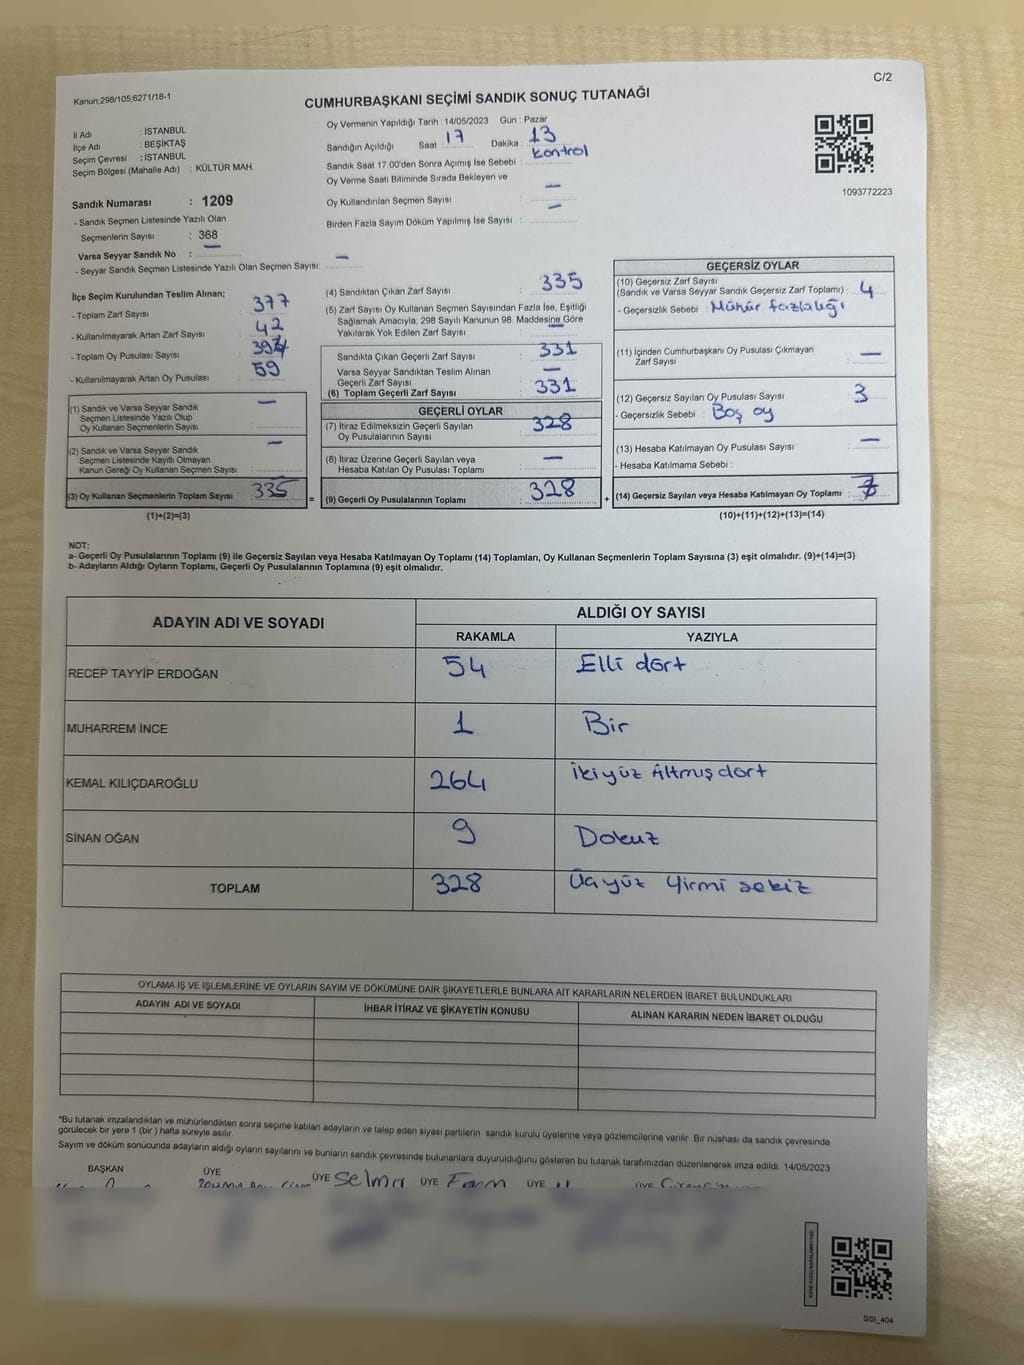 C/2
Kanun;298/105,6271/18-1
CUMHURBAŞKANI SEÇİMİ SANDIK SONUÇ TUTANAĞI
İl Adı : İSTANBUL
İlçe Adı : BEŞİKTAŞ
Seçim Çevresi : İSTANBUL
Seçim Bölgesi (Mahalle Adı) : KÜLTÜR MAH.
Sandık Numarası : 1209
- Sandık Seçmen Listesinde Yazılı Olan
Seçmenlerin Sayısı : 368
Varsa Seyyar Sandık No : —
- Seyyar Sandık Seçmen Listesinde Yazılı Olan Seçmen Sayısı: —
Oy Vermenin Yapıldığı Tarih : 14/05/2023 Gün : Pazar
Sandığın Açıldığı Saat : 17 Dakika : 13
Sandık Saat 17:00'den Sonra Açımış İse Sebebi : kontrol
Oy Verme Saati Bitiminde Sırada Bekleyen ve
Oy Kullandırılan Seçmen Sayısı : —
Birden Fazla Sayım Döküm Yapılmış İse Sayısı : —
1093772223
İlçe Seçim Kurulundan Teslim Alınan;
- Toplam Zarf Sayısı : 377
- Kullanılmayarak Artan Zarf Sayısı : 42
- Toplam Oy Pusulası Sayısı :
- Kullanılmayarak Artan Oy Pusulası : 59
(1) Sandık ve Varsa Seyyar Sandık
Seçmen Listesinde Yazılı Olup
Oy Kullanan Seçmenlerin Sayısı : —
(2) Sandık ve Varsa Seyyar Sandık
Seçmen Listesinde Kayıtlı Olmayan
Kanun Gereği Oy Kullanan Seçmen Sayısı : —
(3) Oy Kullanan Seçmenlerin Toplam Sayısı : 335 =
(1)+(2)=(3)
(4) Sandıktan Çıkan Zarf Sayısı : 335
(5) Zarf Sayısı Oy Kullanan Seçmen Sayısından Fazla İse, Eşitliği
Sağlamak Amacıyla, 298 Sayılı Kanunun 98. Maddesine Göre
Yakılarak Yok Edilen Zarf Sayısı : —
Sandıkta Çıkan Geçerli Zarf Sayısı : 331
Varsa Seyyar Sandıktan Teslim Alınan
Geçerli Zarf Sayısı : —
(6) Toplam Geçerli Zarf Sayısı : 331
GEÇERLİ OYLAR
(7) İtiraz Edilmeksizin Geçerli Sayılan
Oy Pusulalarının Sayısı : 328
(8) İtiraz Üzerine Geçerli Sayılan veya
Hesaba Katılan Oy Pusulası Toplamı : —
(9) Geçerli Oy Pusulalarının Toplamı : 328 +
GEÇERSİZ OYLAR
(10) Geçersiz Zarf Sayısı
(Sandık ve Varsa Seyyar Sandık Geçersiz Zarf Toplamı) : 4
- Geçersizlik Sebebi : Mühür fazlalığı
(11) İçinden Cumhurbaşkanı Oy Pusulası Çıkmayan
Zarf Sayısı : —
(12) Geçersiz Sayılan Oy Pusulası Sayısı : 3
- Geçersizlik Sebebi : Boş oy
(13) Hesaba Katılmayan Oy Pusulası Sayısı : —
- Hesaba Katılmama Sebebi :
(14) Geçersiz Sayılan veya Hesaba Katılmayan Oy Toplamı : 7
(10)+(11)+(12)+(13)=(14)
NOT:
a- Geçerli Oy Pusulalarının Toplamı (9) ile Geçersiz Sayılan veya Hesaba Katılmayan Oy Toplamı (14) Toplamları, Oy Kullanan Seçmenlerin Toplam Sayısına (3) eşit olmalıdır. (9)+(14)=(3)
b- Adayların Aldığı Oyların Toplamı, Geçerli Oy Pusulalarının Toplamına (9) eşit olmalıdır.
ADAYIN ADI VE SOYADI ALDIĞI OY SAYISI
RAKAMLA YAZIYLA
RECEP TAYYİP ERDOĞAN 54 Elli dört
MUHARREM İNCE 1 Bir
KEMAL KILIÇDAROĞLU 264 İkiyüz Altmış dört
SİNAN OĞAN 9 Dokuz
TOPLAM 328 Üçyüz Yirmi sekiz
OYLAMA İŞ VE İŞLEMLERİNE VE OYLARIN SAYIM VE DÖKÜMÜNE DAİR ŞİKAYETLERLE BUNLARA AİT KARARLARIN NELERDEN İBARET BULUNDUKLARI
ADAYIN ADI VE SOYADI İHBAR İTİRAZ VE ŞİKAYETİN KONUSU ALINAN KARARIN NEDEN İBARET OLDUĞU
*Bu tutanak imzalandıktan ve mühürlendikten sonra seçime katılan adayların ve talep eden siyasi partilerin sandık kurulu üyelerine veya gözlemcilerine verilir. Bir nüshası da sandık çevresinde
görülecek bir yere 1 (bir ) hafta süreyle asılır.
Sayım ve döküm sonucunda adayların aldığı oyların sayılarını ve bunların sandık çevresinde bulunanlara duyurulduğunu gösteren bu tutanak tarafımızdan düzenlenerek imza edildi. 14/05/2023
BAŞKAN ÜYE ÜYE Selma ÜYE ÜYE ÜYE
SSI_404